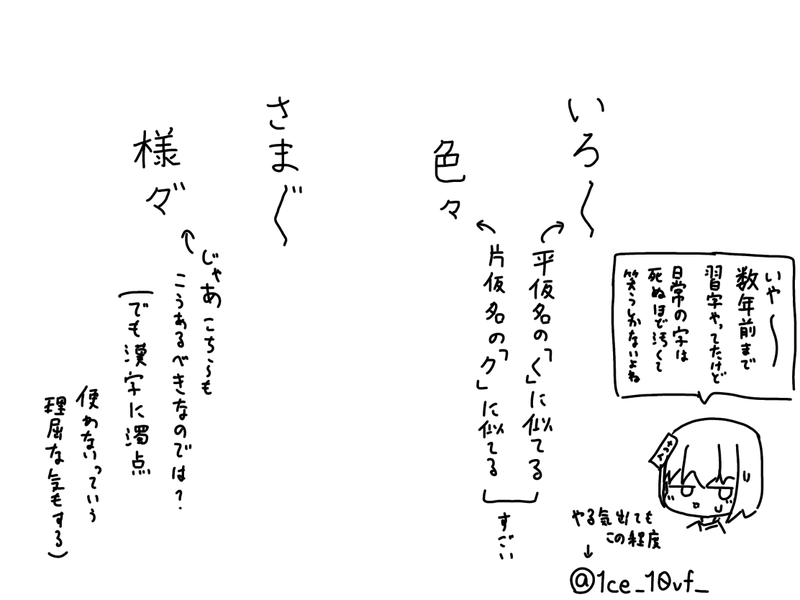 いろ〱
色々
平仮名の「く」に似てる
片仮名の「ク」に似てる
すごい
さま〲
様々゙
じゃあこちらも
こうあるべきなのでは？
(でも漢字に濁点
使めないっていう
理屈な気もする)
いや〜
数年前まで
習字やってたけど
日常の字は
死ぬほど汚くて
笑うしかないよね
やる気出ても
この程度
↓
@1ce_10vf_